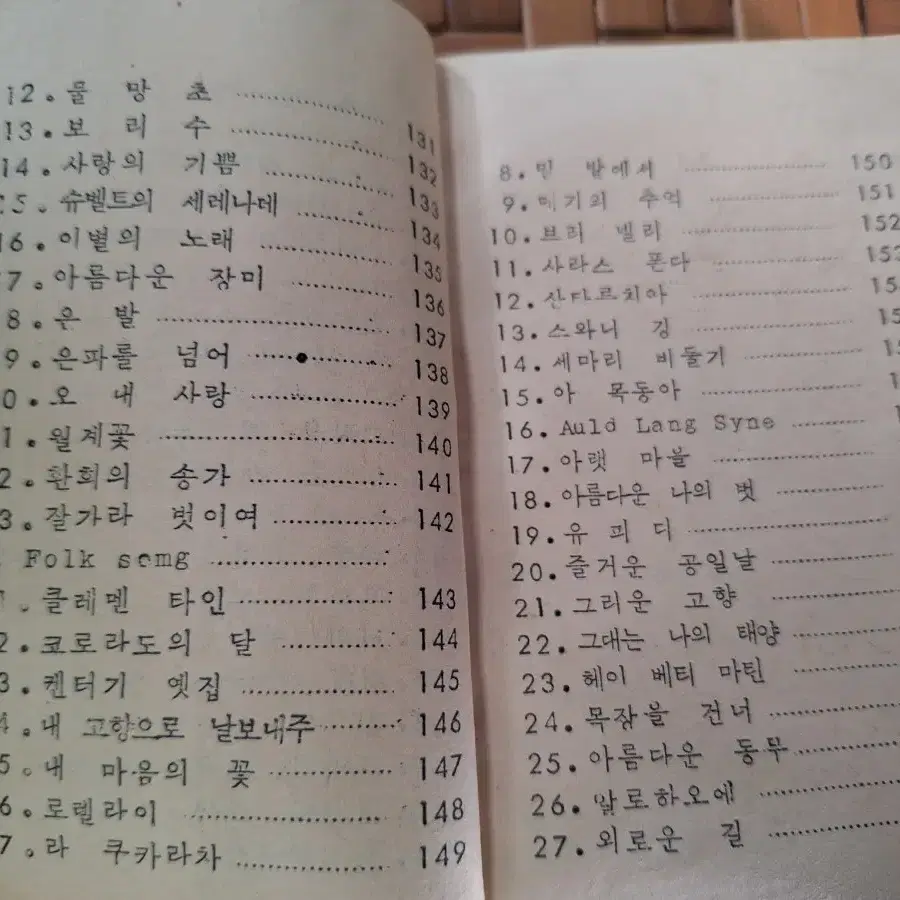 12.물 망 초 131
13.보 리 수 132
14.사랑의 기쁨 133
5.슈벨트의 세레나데 134
16.이별의 노래 135
7.아름다운 장미 136
8.은 발 137
9.은파를 넘어 138
0.오 내 사랑 139
1.월계꽃 140
2.환희의 송가 141
3.잘가라 벗이여 142
Folk somg
.클레멘 타인 143
2.코로라도의 달 144
3.켄터기 옛집 145
4.내 고향으로 날보내주 146
5.내 마음의 꽃 147
6.로렐라이 148
7.라 쿠카라차 149
8. 밭에서 150
9.메기의 추억 151
10.브리 넬리 152
11.사라스 폰다 15
12.산다르치아 15
13.스와니 강 15
14.세마리 비둘기 15
15.아 목동아 1
16.Auld Lang Syne 1
17.아랫 마을
18.아름다운 나의 벗
19.유 피 디
20.즐거운 공일날
21.그리운 고향
22.그대는 나의 태양
23.헤이 베티 마틴
24.목장을 건너
25.아름다운 동무
26.알로하오에
27.외로운 길